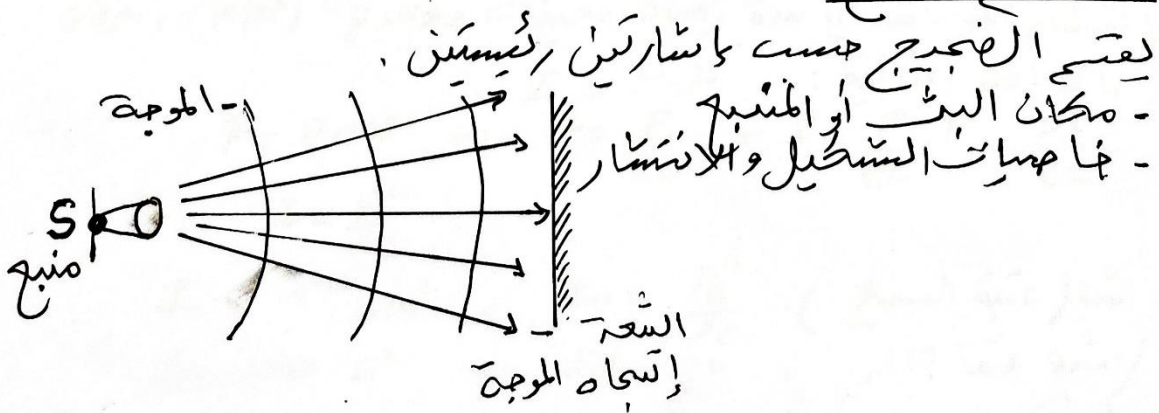 يقسم الضجيج حسب إشارتين رئيسيتين.
- مكان البث أو المنبع
- خاصيات التشكيل والانتشار
- الموجة
S
منبع
- الشعة
إتجاه الموجة